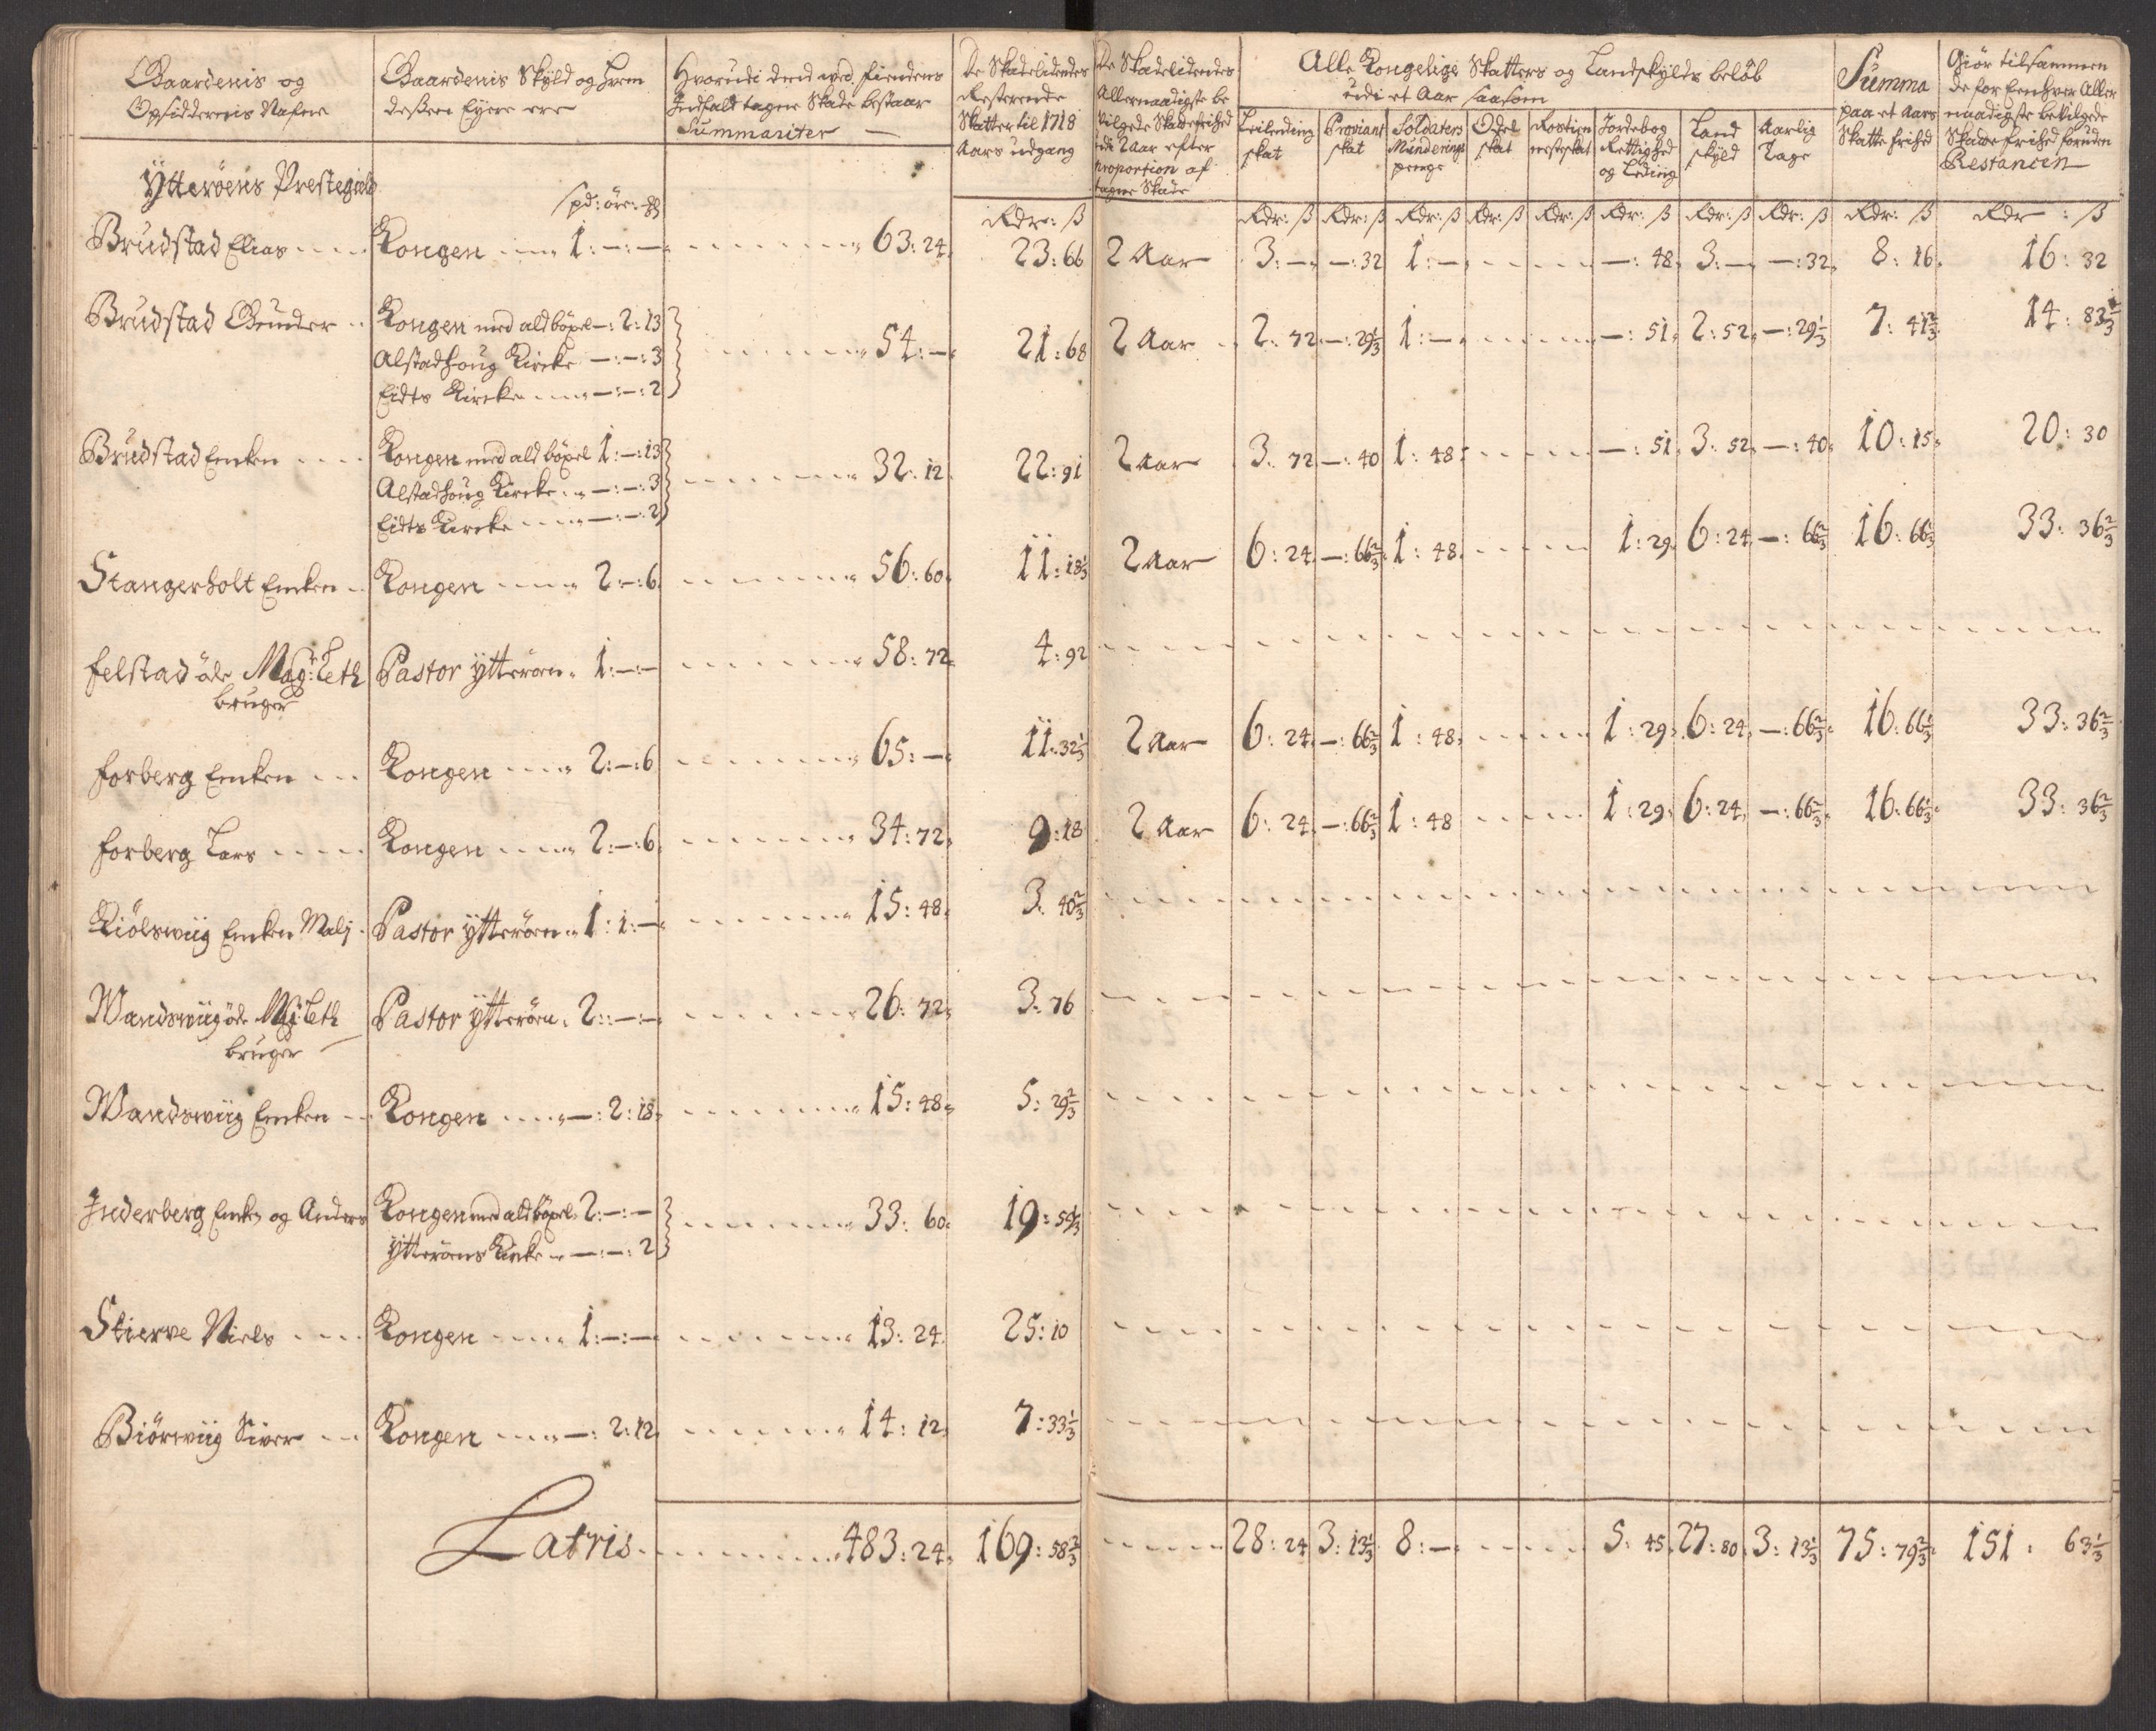 Gaardenis og
Opsiddernis Nafne
Gaardenis Skyld og hvem
desßen Eyere ere
Hvorudi dend ved fiendens
Indfald tagne Skade bestaar
Summariter —
De Skadelidendes
Resterende
Skatter til 1718
Aars udgang
De Skadelidendes
Allernaadigste be
vilgede Skatte frihed
udi 2 Aar efter
proportion af
tagne Skade
Alle Kongelige Skatters og Landskylds beløb
udi et Aar saasom
Leilending
skat
Proviant
skat
Soldaters
Munderings
penge
Odel
skat
Rostien
neste skat
Jordebog
Rettighed
og Leding
Land
skyld
Aarlig
Tage
Summa
paa et Aars
Skatte frihed
Giör tilsammen
de for Eenhver Aller
naadigste bevilgede
Skatte frihed foruden
Restancen
Ytterøens Prestegield
spd: öre: ℔
Rdr: ß Rdr: ß Rdr: ß Rdr: ß Rdr: ß Rdr: ß Rdr: ß Rdr: ß Rdr: ß Rdr: ß Rdr : ß
Brudstad Elias Kongen 1:—:— 63:24 23:66 2 Aar 3:— —:32 1:— —:48 3:— —:32 8:16 16:32
Brudstad Gunder Kongen med ald böxel —:2:13
Alstadhoug Kircke —:—:3 54:— 21:68 2 Aar 2:72 —:29⅓ 1:— —:51 2:52 —:29⅓ 7:41⅔ 14:83⅓
Eidts Kircke —:—:2
Brudstad Encken Kongen med ald böxel 1:—:13
Alstadhoug Kircke —:—:3 32:12 22:91 2 Aar 3:72 —:40 1:48 —:51 3:52 —:40 10:15 20:30
Eidts Kircke —:—:2
Stangerholt Encken Kongen 2:—:6 56:60 11:18⅓ 2 Aar 6:24 —:66⅔ 1:48 1:29 6:24 —:66⅔ 16:66⅓ 33:36⅔
Felstad öde Magr: Leth Pastor Ytterøen 1:—:— 58:72 4:92
bruger
Forberg Encken Kongen 2:—:6 65:— 11:32⅓ 2 Aar 6:24 —:66⅔ 1:48 1:29 6:24 —:66⅔ 16:66⅓ 33:36⅔
Forberg Lars Kongen 2:—:6 34:72 9:18 2 Aar 6:24 —:66⅔ 1:48 1:29 6:24 —:66⅔ 16:66⅓ 33:36⅔
Kiölswiig Encken Malj Pastor Ytterøen 1:1:— 15:48 3:40⅔
Wandswiig öde Mag: Leth Pastor Ytterøen 2:—:— 26:72 3:76
bruger
Wandswiig Encken Kongen —:2:18 15:48 5:29⅔
Inderberg Enck: og Anders Kongen med ald böxel 2:—:— 33:60 19:59⅓
Ytterøens Kircke —:—:2
Skierve Niels Kongen 1:—:— 13:24 25:10
Biörwiig Siver Kongen —:2:12 14:12 7:33⅓
Latris 483:24 169:58⅔ 28:24 3:13⅓ 8:— 5:45 27:80 3:13⅓ 75:79⅔ 151:63⅓